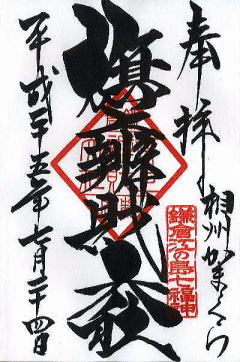 奉拝
相州かまくら
鎌倉江の島七福神
旗上弁財天社
平成二十五年七月二十四日